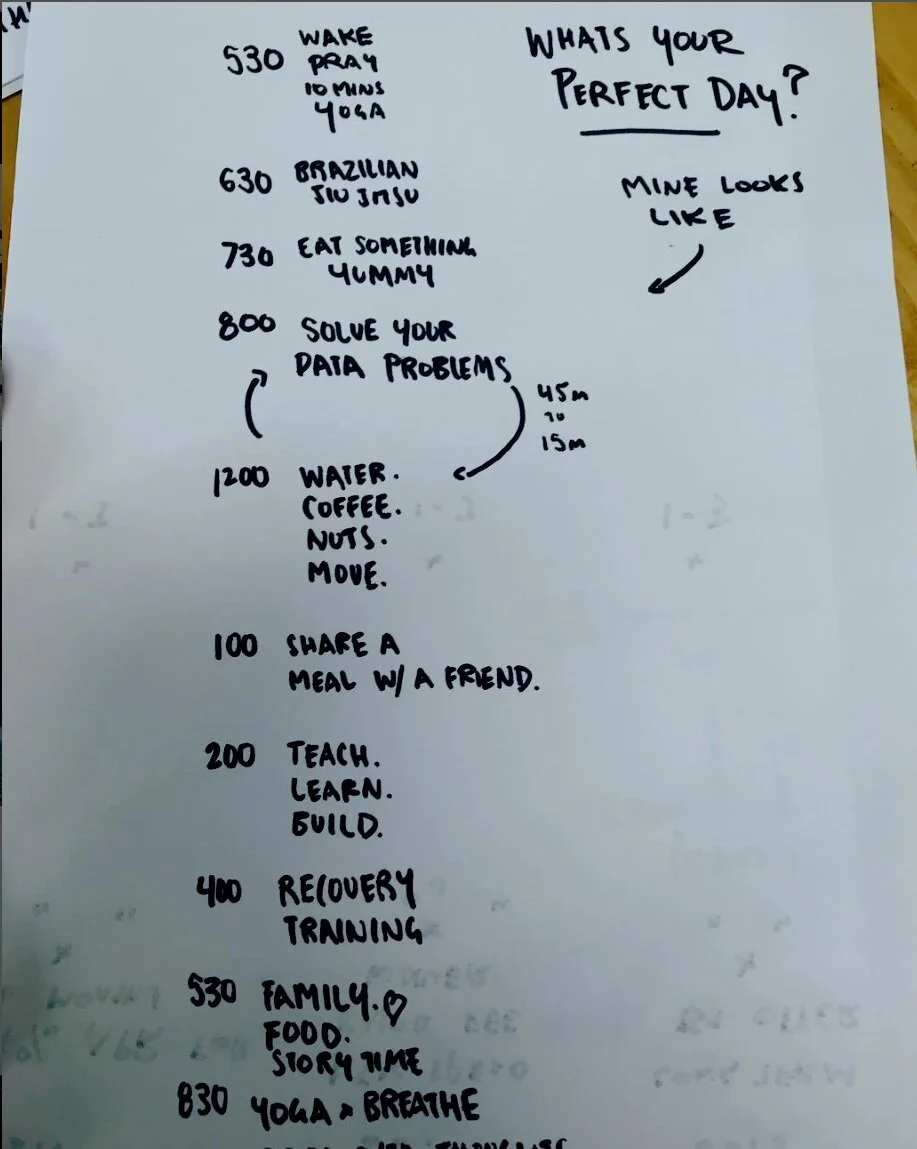 WHATS YOUR
PERFECT DAY?
MINE LOOKS
LIKE
530 WAKE
PRAY
10 MINS
YOGA
630 BRAZILIAN
JIU JITSU
730 EAT SOMETHING
YUMMY
800 SOLVE YOUR
DATA PROBLEMS
45m
TO
15m
1200 WATER.
COFFEE.
NUTS.
MOVE.
100 SHARE A
MEAL W/ A FRIEND.
200 TEACH.
LEARN.
BUILD.
400 RECOVERY
TRAINING
530 FAMILY.♡
FOOD.
STORY TIME
830 YOGA & BREATHE